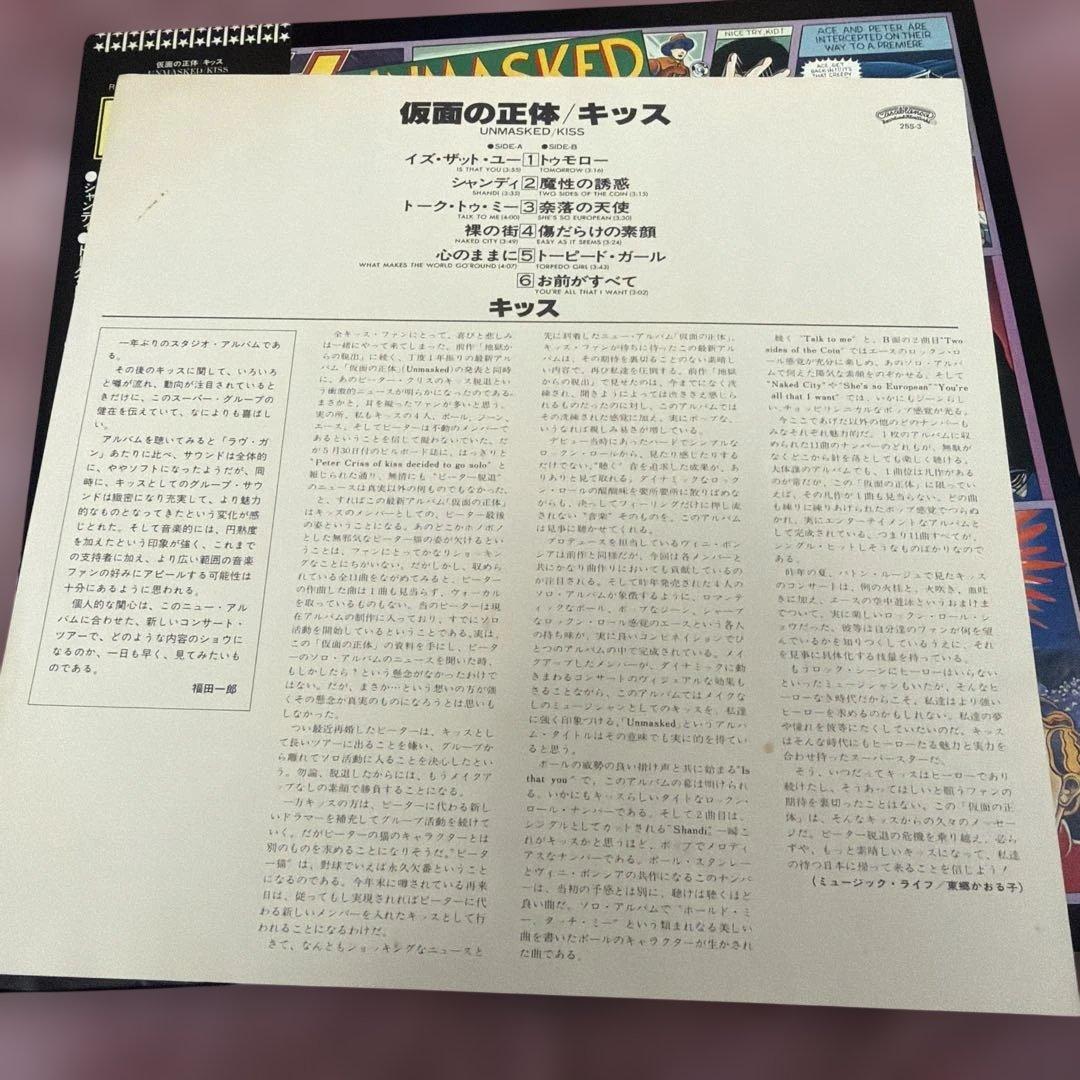 仮面の正体 キッス
UNMASKED/KISS
UNMASKED
NICE TRY, KID!
ACE AND PETER ARE
INTERCEPTED ON THEIR
WAY TO A PREMIERE.
仮面の正体/キッス
UNMASKED/KISS
Casablanca
25S-3
●SIDE-A ●SIDE-B
イズ・ザット・ユー 1 トゥモロー
IS THAT YOU (3:55) TOMORROW (3:16)
シャンディ 2 魔性の誘惑
SHANDI (3:33) TWO SIDES OF THE COIN (3:15)
トーク・トゥ・ミー 3 奈落の天使
TALK TO ME (4:00) SHE'S SO EUROPEAN (3:30)
裸の街 4 傷だらけの素顔
NAKED CITY (3:49) EASY AS IT SEEMS (3:24)
心のままに 5 トーピード・ガール
WHAT MAKES THE WORLD GO'ROUND (4:07) TORPEDO GIRL (3:43)
6 お前がすべて
YOU'RE ALL THAT I WANT (3:02)
キッス
一年ぶりのスタジオ・アルバムであ
る。
その後のキッスに関して、いろいろ
と噂が流れ、動向が注目されていると
きだけに、このスーパー・グループの
健在を伝えていて、なによりも喜ばし
い。
アルバムを聴いてみると「ラヴ・ガ
ン」あたりに比べ、サウンドは全体的
に、ややソフトになったようだが、同
時に、キッスとしてのグループ・サウ
ンドは緻密になり充実して、より魅力
的なものとなってきたという変化が感
じとれた。そして音楽的には、円熟度
を加えたという印象が強く、これまで
の支持者に加え、より広い範囲の音楽
ファンの好みにアピールする可能性は
十分にあるように思われる。
個人的な関心は、このニュー・アル
バムに合わせた、新しいコンサート・
ツアーで、どのような内容のショウに
なるのか、一日も早く、見てみたいも
のである。
福田一郎
全キッス・ファンにとって、喜びと悲しみ
は一緒にやって来てしまった。前作「地獄か
らの脱出」に続く、丁度1年振りの最新アル
バム「仮面の正体」(Unmasked)の発表と同時
に、あのピーター・クリスのキッス脱退とい
う衝撃的ニュースが明らかになったのである。
まさかと、耳を疑ったファンが多いと思う。
実の所、私もキッスの4人、ポール、ジーン、
エース、そしてピーターは不動のメンバーで
あるということを信じて疑わないでいた。だ
が5月30日付のビルボード誌に、はっきりと
"Peter Criss of kiss decided to go solo" と
報じられた通り、無情にも"ピーター脱退"
のニュースは真実以外の何ものでもなかった。
と、すればこの最新アルバム「仮面の正体」
はキッスのメンバーとしての、ピーター最後
の姿ということになる。あのどこかホノボノ
とした無邪気なピーター猫の姿が欠けるとい
うことは、ファンにとってかなりショッキン
グなことにちがいない。だがしかし、収めら
れている全11曲をながめてみると、ピーター
の作曲した曲は1曲も見当らず、ヴォーカル
を取っているものもない。当のピーターは現
在アルバムの制作に入っており、すでにソロ
活動を開始しているということである。実は、
この「仮面の正体」の資料を手にし、ピータ
ーのソロ・アルバムのニュースを聞いた時、
もしかしたら?という懸念がなかったわけで
はない。だが、まさか…という想いの方が強
くその懸念が真実のものになろうとは思いも
しなかった。
つい最近再婚したピーターは、キッスとし
て長いツアーに出ることを嫌い、グループか
ら離れてソロ活動に入ることを決心したとい
う。勿論、脱退したからには、もうメイクア
ップなしの素顔で勝負することになる。
一方キッスの方は、ピーターに代わる新し
いドラマーを補充してグループ活動を続けて
いく。だがピーターの猫のキャラクターとは
別のものを求めることになりそうだ。"ピータ
ー猫"は、野球でいえば永久欠番ということ
になるのである。今年末に噂されている再来
日は、従ってもし実現されればピーターに代
わる新しいメンバーを入れたキッスとして行
われることになるわけだ。
さて、なんともショッキングなニュースと
先に到着したニュー・アルバム「仮面の正体」。
キッス・ファンが待ちに待ったこの最新アル
バムは、その期待を裏切ることのない素晴し
い内容で、再び私達を圧倒する。前作「地獄
からの脱出」で見せたのは、今までになく洗
練され、聞きようによっては渋ささえ感じら
れるものだったのに対し、このアルバムでは
その洗練された感覚に加え、実にポップな、
いうなれば親しみ易さが増している。
デビュー当時にあったハードでシンプルな
ロックン・ロールから、見たり感じたりする
だけでない。"聴く"音を追求した成果が、あ
りありと見て取れる。ダイナミックなロック
ン・ロールの醍醐味を要所要所に散りばめな
がらも、決してフィーリングだけに押し流
されない"音楽"そのものを、このアルバム
は見事に聴かせてくれる。
プロデュースを担当しているヴィニ・ポン
シアは前作と同様だが、今回は各メンバーと
共にかなり曲作りにおいても貢献しているの
が注目される。そして昨年発売された4人の
ソロ・アルバムが象徴するように、ロマンテ
ィックなポール、ポップなジーン、シャープ
なロックン・ロール感覚のエースという各人
の持ち味が、実に良いコンビネイションでひ
とつのアルバムの中で完成されている。メイ
クアップしたメンバーが、ダイナミックに動
きまわるコンサートのヴィジュアルな効果も
さることながら、このアルバムではメイクな
しのミュージシャンとしてのキッスを、私達
に強く印象づける。「Unmasked」というアルバ
ム・タイトルはその意味でも実に的を得てい
ると思う。
ポールの威勢の良い掛け声と共に始まる"Is
that you"で、このアルバムの幕は明けられ
る。いかにもキッスらしいタイトなロックン・
ロール・ナンバーである。そして2曲目は、
シングルとしてカットされる"Shandi"一瞬こ
れがキッスかと思うほど、ポップでメロディ
アスなナンバーである。ポール・スタンレー
とヴィニ・ポンシアの共作になるこのナンバ
ーは、当初の予感とは別に、聴けば聴くほど
良い曲だ。ソロ・アルバムで"ホールド・ミ
ー、タッチ・ミー"という類まれなる美しい
曲を書いたポールのキャラクターが生かされ
た曲である。
続く"Talk to me"と、B面の2曲目"Two
sides of the Coin"ではエースのロックン・ロ
ール感覚が充分に楽しめ、あのソロ・アルバ
ムで伺えた陽気な素顔をのぞかせる。そして
"Naked City"や"She's so European""You're
all that I want"では、いかにもジーンらし
い、チョッピリシニカルなポップ感覚が光る。
今ここであげた以外の他のどのナンバーも
みなそれぞれ魅力的だ。1枚のアルバムに収
められた11曲のナンバーのどれもが、無駄が
なくどこから針を落としても楽しく聴ける。
大体誰のアルバムでも、1曲位は凡作がある
のが常だが、この「仮面の正体」に限ってい
えば、その凡作が1曲も見当らない。どの曲
も練りに練りあげられたポップ感覚でつらぬ
かれ、実にエンターテイメントなアルバムと
して完成されている。つまり11曲すべてが、
シングル・ヒットしそうなものばかりなので
ある。
昨年の夏、バトン・ルージュで見たキッス
のコンサートは、例の火柱と、火吹き、血吐
きに加え、エースの空中遊泳というおまけま
でついて、実に楽しいロックン・ロール・シ
ョウだった。彼等は自分達のファンが何を望
んでいるかを知りつくしているうえに、それ
を見事に具体化する技量を持っている。
もうロック・シーンにヒーローはいらない
といったミュージシャンもいたが、そんなヒ
ーローなき時代だからこそ、私達はより強い
ヒーローを求めるのかもしれない。私達の夢
や憧れを彼等にたくしていたいのだ。キッス
はそんな時代にもヒーローたる魅力と実力を
合わせ持ったスーパースターだ。
そう、いつだってキッスはヒーローであり
続けたし、そうあってほしいと願うファンの
期待を裏切ったことはない。この「仮面の正
体」は、そんなキッスからの久々のメッセー
ジだ。ピーター脱退の危機を乗り越え、必ら
ずや、もっと素晴しいキッスになって、私達
の待つ日本に帰って来ることを信じよう!
(ミュージック・ライフ/東郷かおる子)